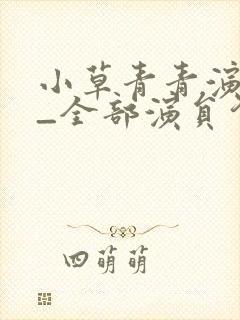 小草青青演
_全部演员
四萌萌